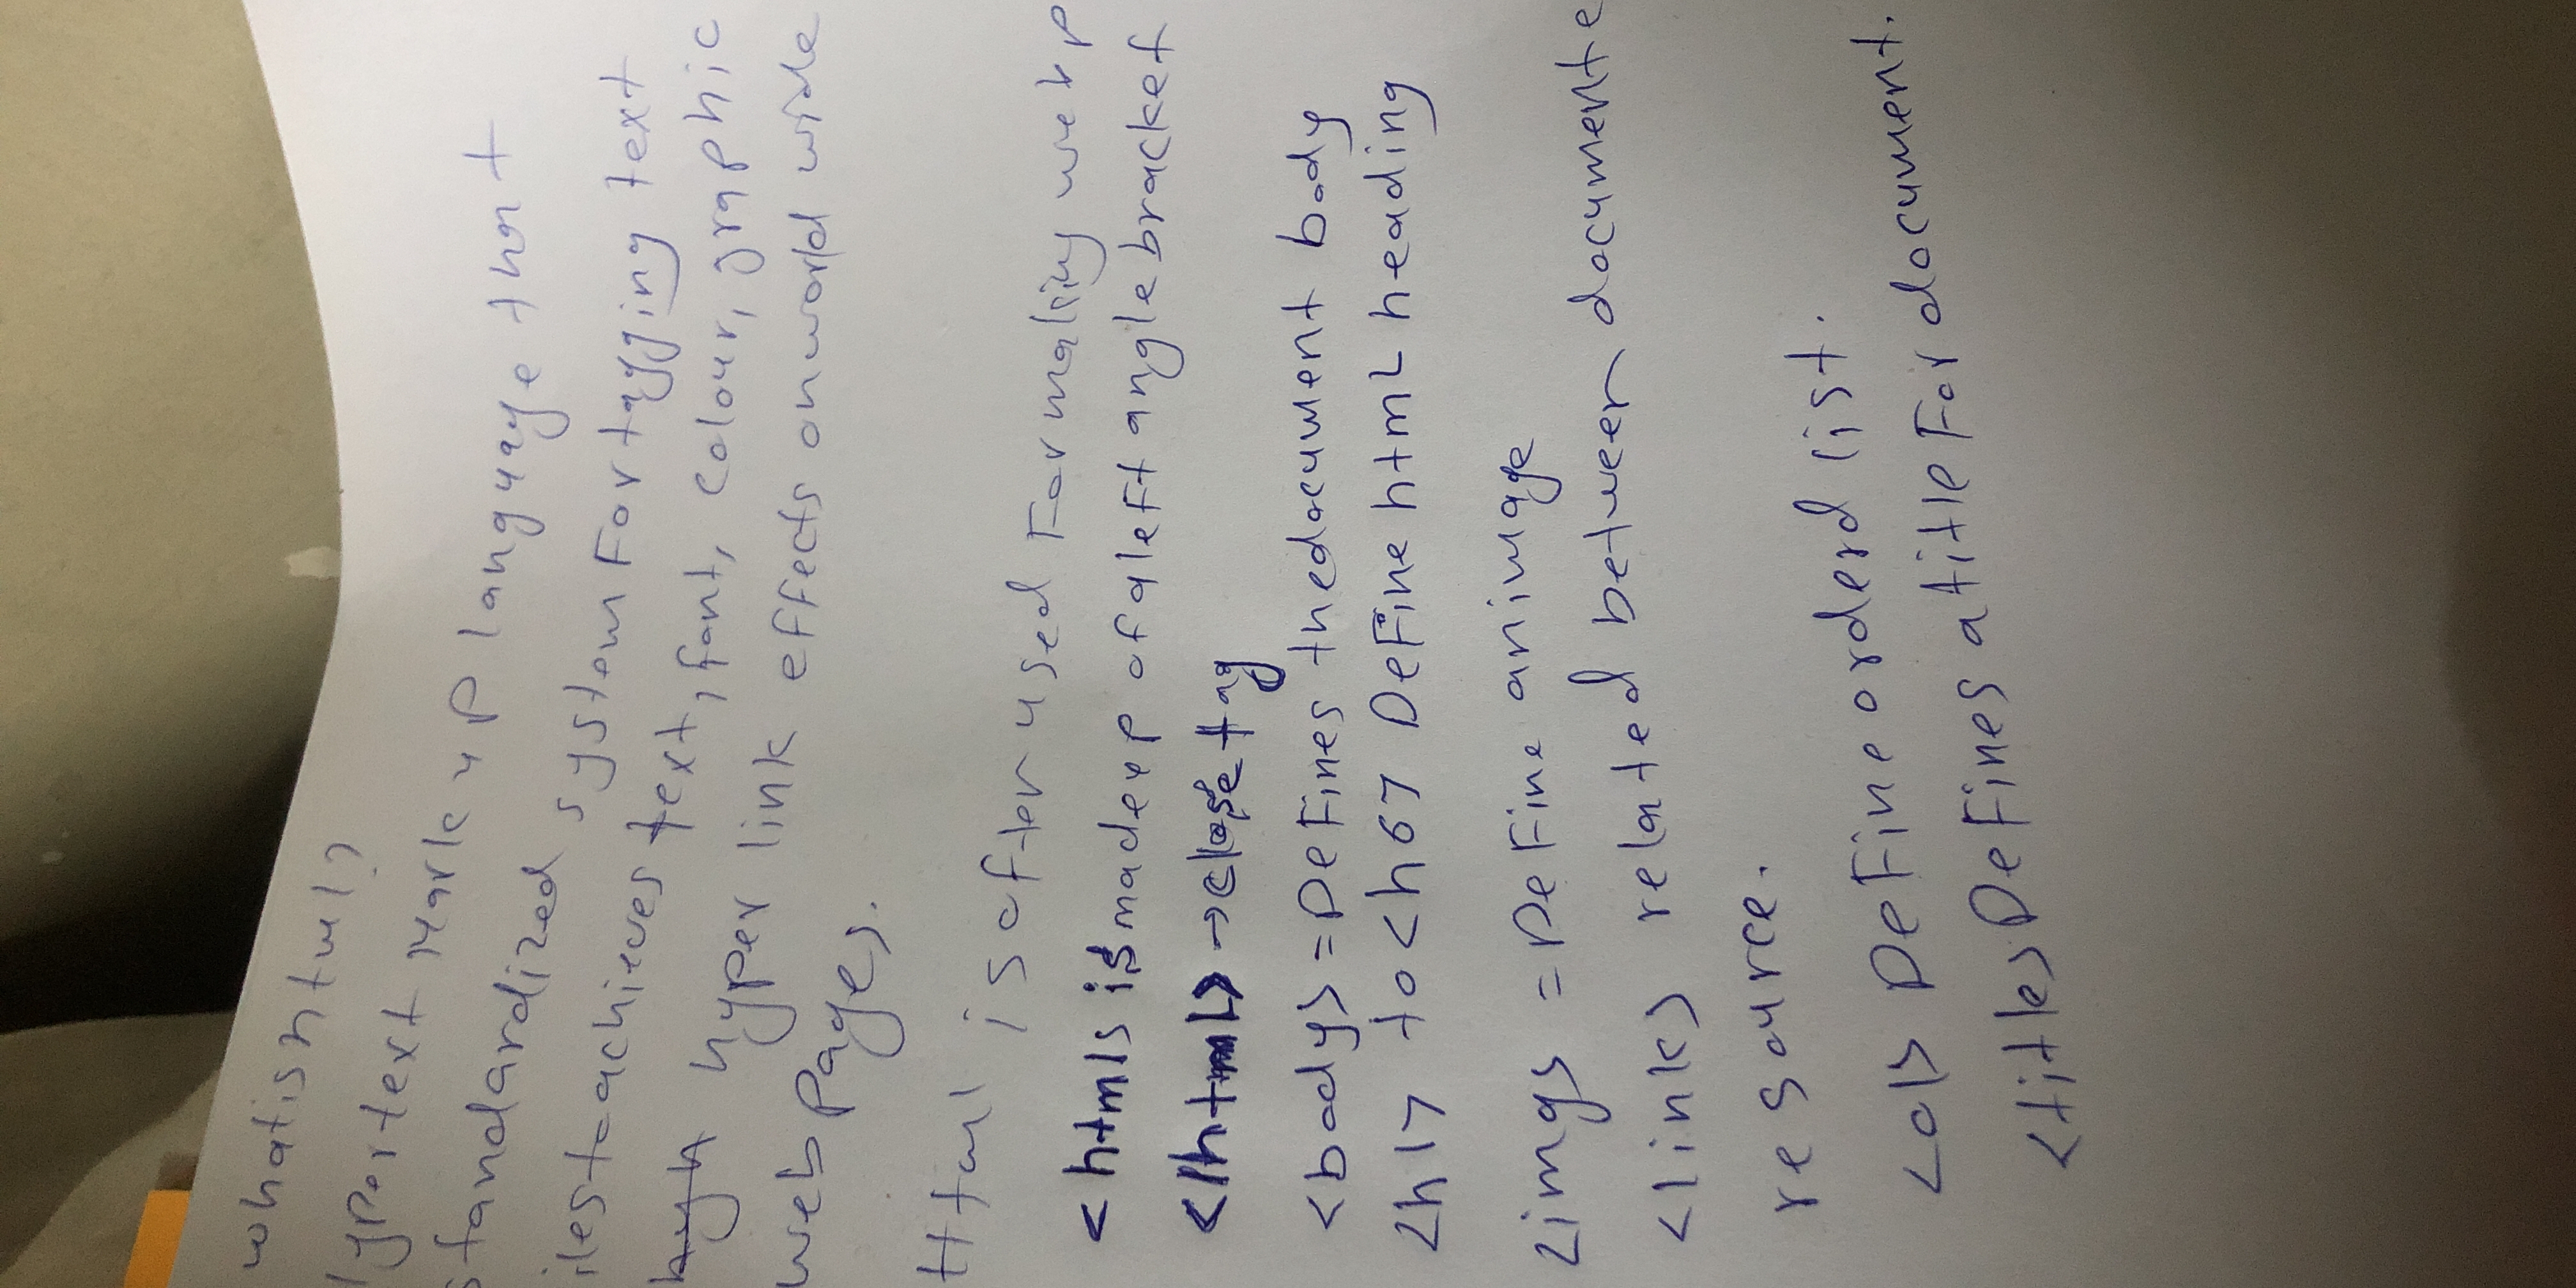 what is html?
ypertext Markup language that
standardized system For tagging text
iles to achieves text, font, colour, graphic
hyper link effects on world wide
web Pages.
Html is often used Formaling web p
<html> is made up of a left angle bracket
</html> → close tag
<body> = DeFines the document body
<h1> to <h6> DeFine htmL heading
<img> = DeFine an image
<link> related between documente
resource.
<ol> DeFine orderd list.
<title> DeFines a title For document.